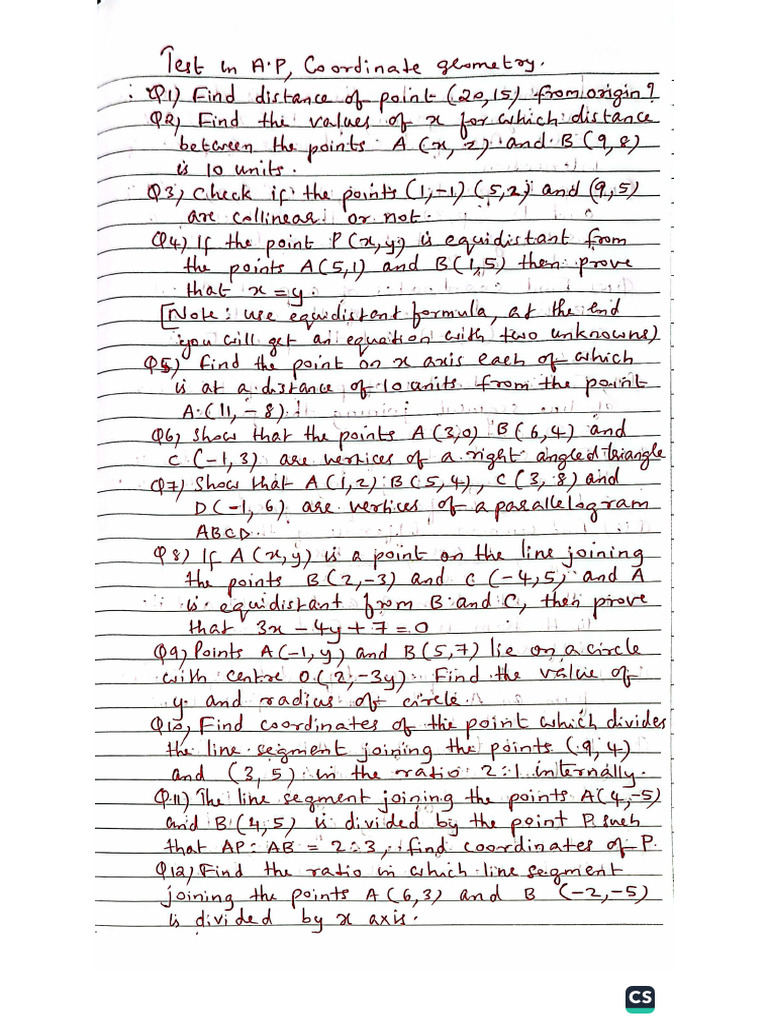 Test in A.P, Coordinate geometry.
Q1) Find distance of point (20,15) from origin?
Q2) Find the values of x for which distance
between the points A (x, 2) and B (9,8)
is 10 units.
Q3) Check if the points (1,-1) (5,2) and (9,5)
are collinear or not.
Q4) If the point P(x,y) is equidistant from
the points A(5,1) and B(1,5) then prove
that x = y.
[Note: use equidistant formula, at the end
you will get an equation with two unknowns)
Q5) Find the point on x axis each of which
is at a distance of 10 units from the point
A (11, -8).
Q6) Show that the points A (3,0) B(6,4) and
C (-1,3) are vertices of a right angled triangle
Q7) Show that A(1,2) B(5,4), C (3,8) and
D(-1,6) are vertices of a parallelogram
ABCD.
Q8) If A(x,y) is a point on the line joining
the points B(2,-3) and C (-4,5) and A
is equidistant from B and C, then prove
that 3x - 4y + 7 = 0
Q9) Points A(-1,y) and B(5,7) lie on a circle
with centre O(2,-3y). Find the value of
y and radius of circle.
Q10) Find coordinates of the point which divides
the line segment joining the points (9,4)
and (3,5) in the ratio 2:1 internally.
Q11) The line segment joining the points A(4,-5)
and B(4,5) is divided by the point P such
that AP: AB = 2:3, find coordinates of P.
Q12) Find the ratio in which line segment
joining the points A(6,3) and B (-2,-5)
is divided by x axis.
CS